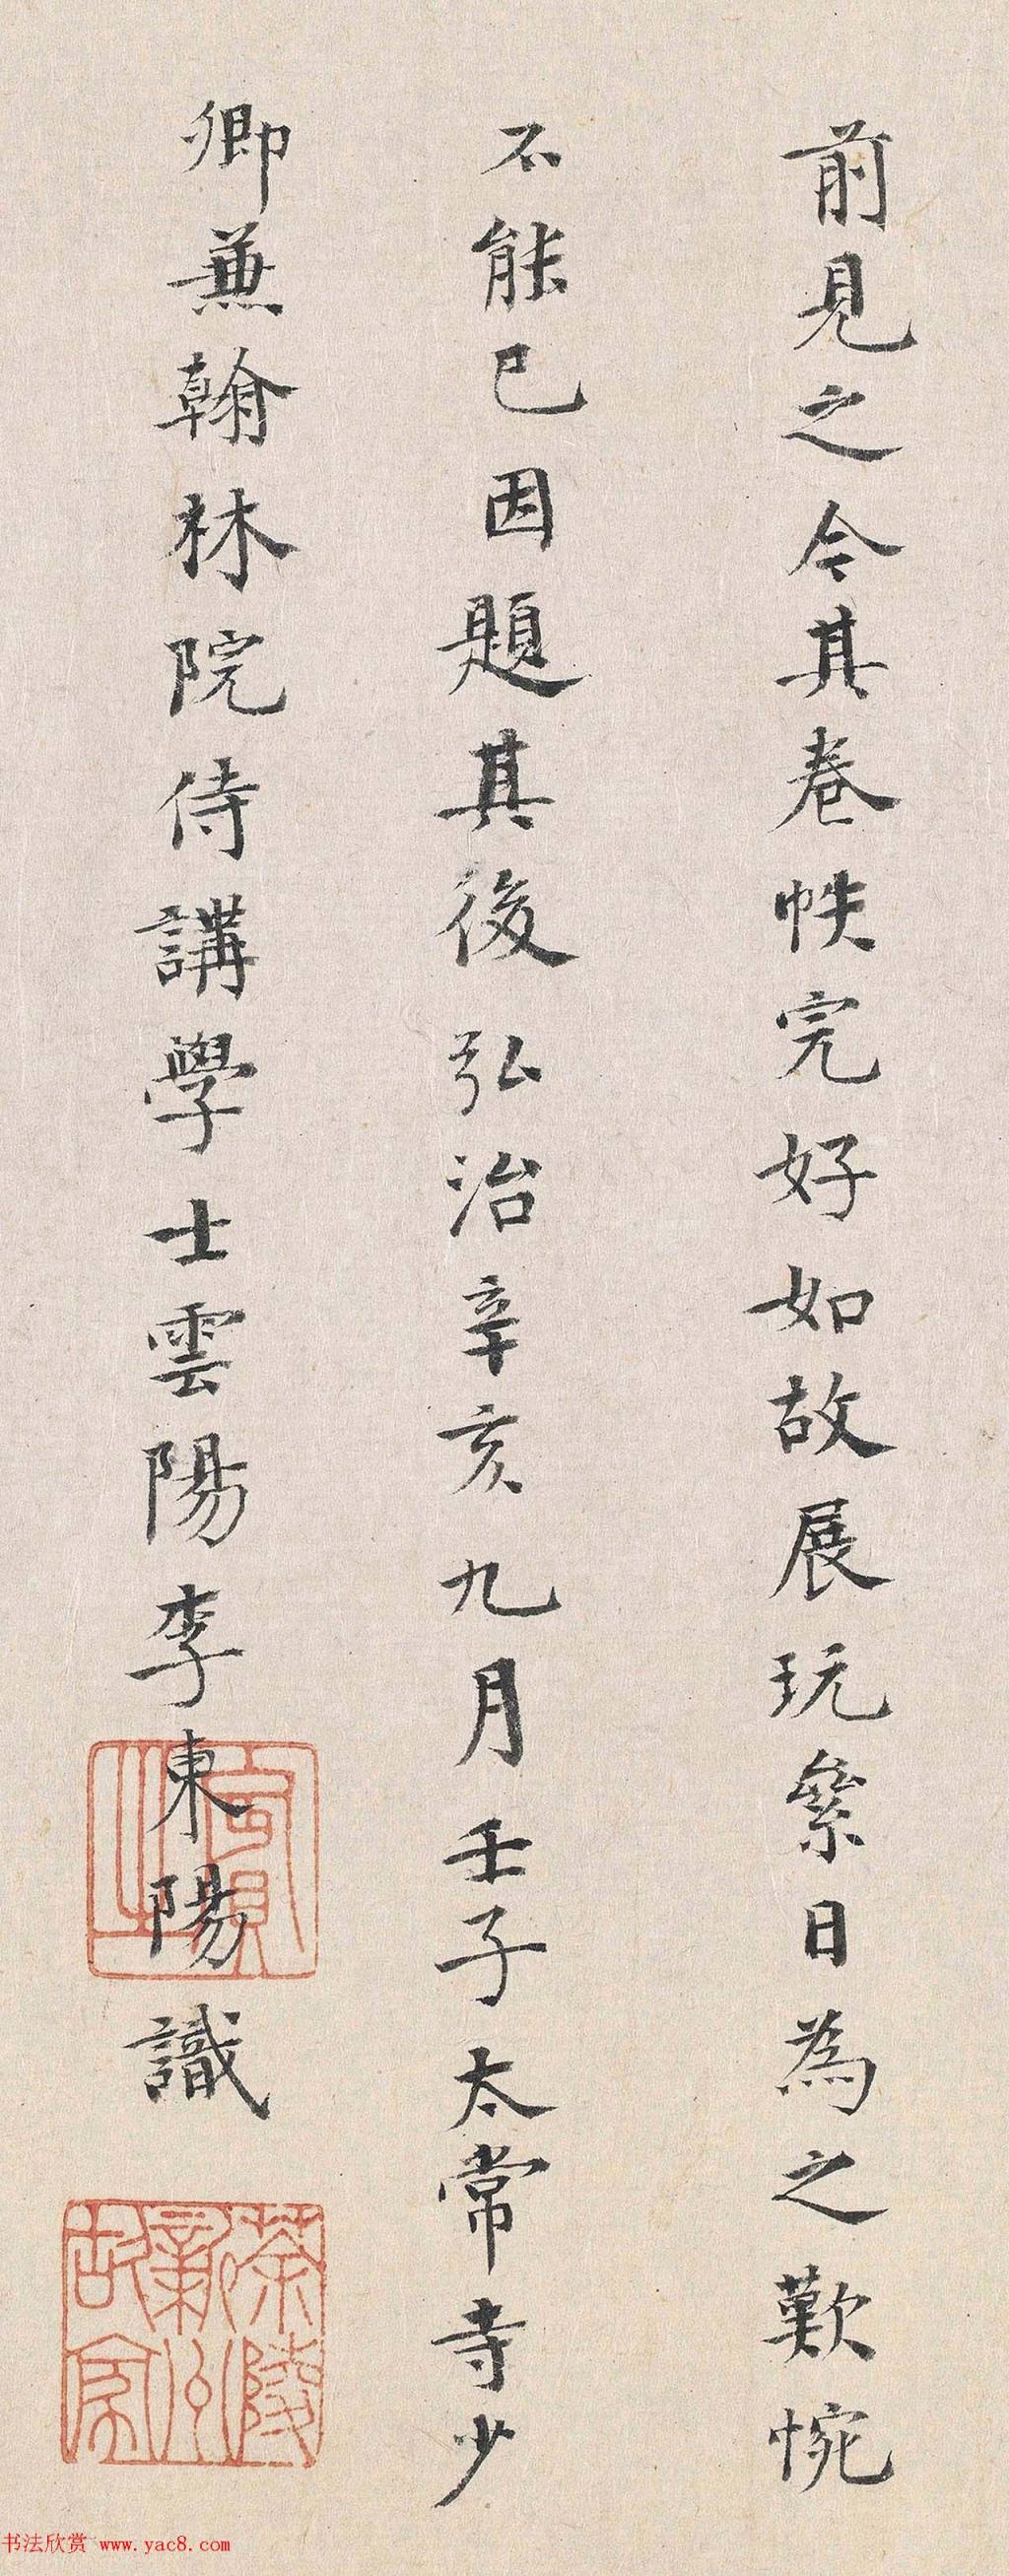 前見之今其卷帙完好如故展玩絫日為之歎惋
不能已因題其後弘治辛亥九月壬子太常寺少
卿兼翰林院侍講學士雲陽李東陽識
賓之
茶陵
书法欣赏 www.yac8.com